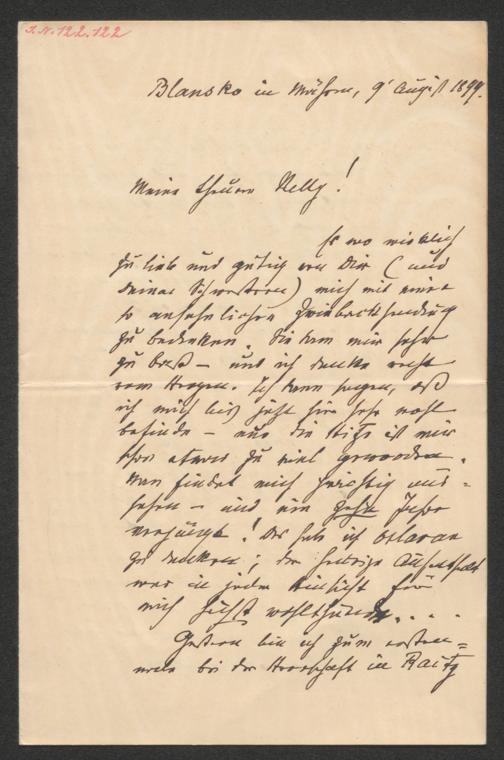 I.N. 122.122
Blansko in Mähren, 9' August 1899.
Meine theure Nelly!
Es war wirklich
zu lieb und gütig von Dir (und
Deinen Schwestern) mich mit einer
so ansehnlichen Zwiebacksendung
zu bedenken. Sie kam mir sehr
zu – und ich danke recht
vom Herzen. Ich kann sagen, daß
ich mich bis jetzt hier sehr wohl
befinde – nur die Hitze ist mir
etwas zu viel geworden.
Man findet mich prächtig aus=
sehen – und um zehn Jahre
verjüngt! Das habe ich
zu danken; der Aufenthalt
war in jeder Hinsicht für
mich höchst wohlthuend....
Gestern bin ich zum ersten=
male bei der Herrschaft in Raitz